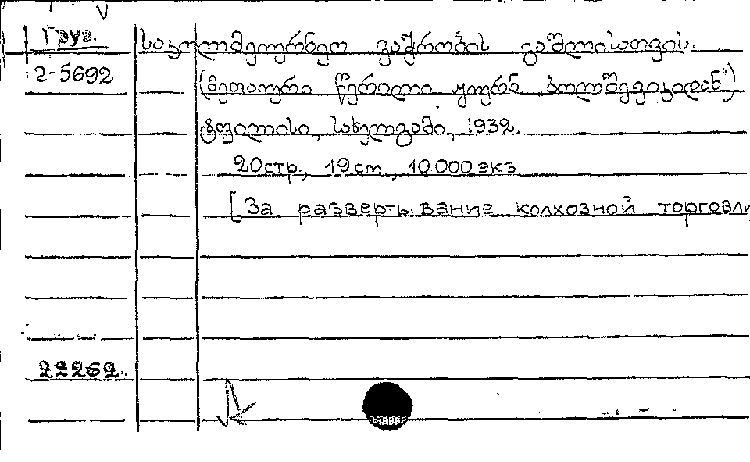 Груз.
2-5692
საკოლმეურნეო ვაჭრობის გაშლისათვის.
(მეთაური წერილი ჟურნ ბოლშევიკიდან")
ტფილისი, სახელგამი, 1932.
20стр., 19 cm, 10.000 экз
[За развертывание колхозной торговли
22262.